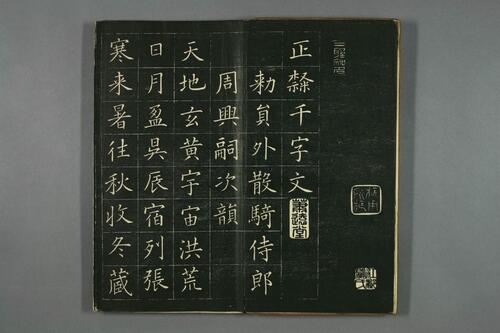 正隸千字文
勑負外散騎侍郎
周興嗣次韻
天地玄黃宇宙洪荒
日月盈昃辰宿列張
寒来暑往秋收冬藏